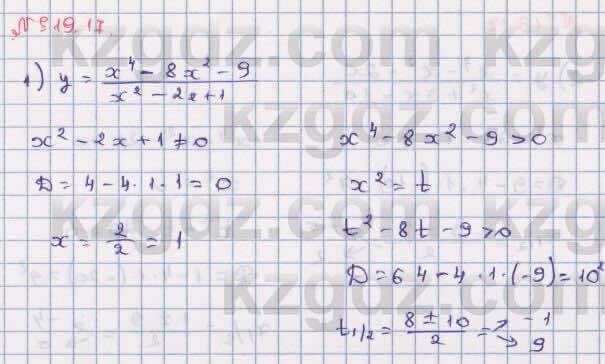 № 319.17.
1) y = (x⁴ − 8x² − 9)/(x² − 2x + 1)
x² − 2x + 1 ≠ 0
D = 4 − 4 · 1 · 1 = 0
x = 2/2 = 1
x⁴ − 8x² − 9 > 0
x² = t
t² − 8t − 9 > 0
D = 64 − 4 · 1 · (−9) = 10²
t₁/₂ = (8 ± 10)/2 = −1
9
kzgdz.com
kzgdz.com
kzgdz.com
kzgdz.com